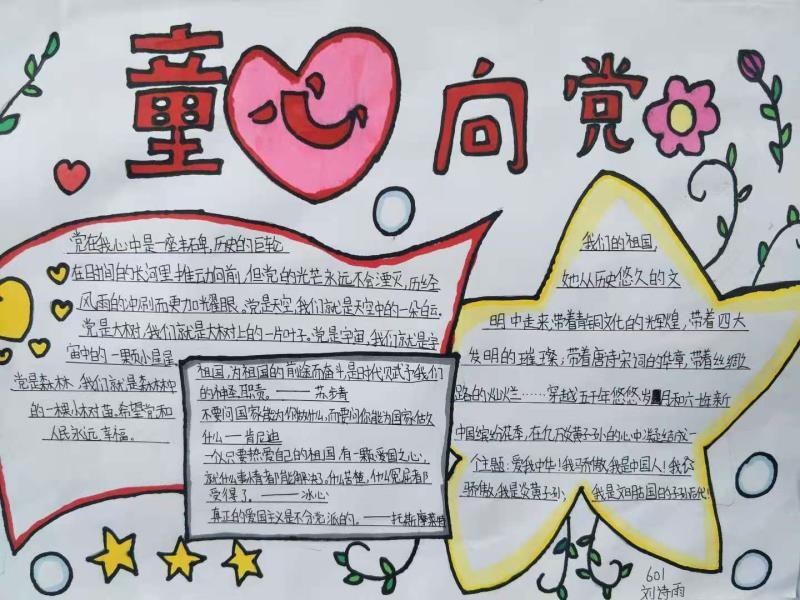 童心向党
党在我心中是一座丰碑,历史的巨轮
在时间的长河里推动向前,但党的光芒永远不会湮灭,历经
风雨的冲刷而更加光耀眼。党是天空,我们就是天空中的一朵白云.
党是大树,我们就是大树上的一片叶子。党是宇宙,我们就是宇
宙中的一颗小星星
党是森林,我们就是森林中
的一棵小树苗.希望党和
人民永远幸福。
祖国,为祖国的前途而奋斗,是时代赋予我们
的神圣职责。——苏步青
不要问国家能为你做什么,而要问你能为国家做
什么——肯尼迪
一个人只要热爱自己的祖国,有一颗爱国之心,
就什么事情都能解决,什么苦楚,什么冤屈都
受得了。——冰心
真正的爱国主义是不分党派的。——托斯摩莱特
我们的祖国,
她从历史悠久的文
明中走来,带着青铜文化的光辉煌,带着四大
发明的璀璨,带着唐诗宋词的华章,带着丝绸
路的灿烂……穿越五千年悠悠岁月和六十年新
中国缤纷花季,在亿万炎黄子孙的心中凝结成一
个主题:爱我中华!我骄傲,我是中国人!我
骄傲,我是炎黄子孙;我是文明古国的子孙后代!
601
刘诗雨